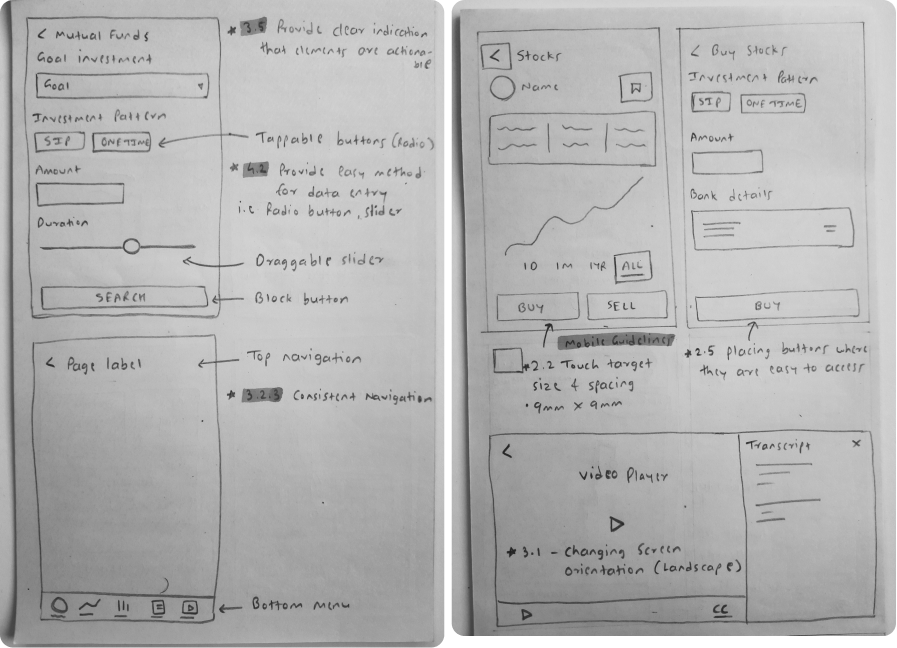 < Mutual Funds
Goal investment
Goal
Investment Pattern
SIP
ONE TIME
Amount
Duration
SEARCH
* 3.5 Provide clear indication
that elements are actiona-
ble
Tappable buttons (Radio)
* 4.2 Provide easy method
for data entry
i.e Radio button, slider
Draggable slider
Block button
< Page label
Top navigation
* 3.2.3 Consistent Navigation
Bottom menu
< Stocks
Name
1D 1M 1YR ALL
BUY
SELL
Mobile Guidelines
* 2.2 Touch target
size & spacing
• 9mm x 9mm
< Buy Stocks
Investment Pattern
SIP
ONE TIME
Amount
Bank details
BUY
* 2.5 Placing buttons where
they are easy to access
<
Video Player
* 3.1 - Changing Screen
orientation (Landscape)
CC
Transcript x